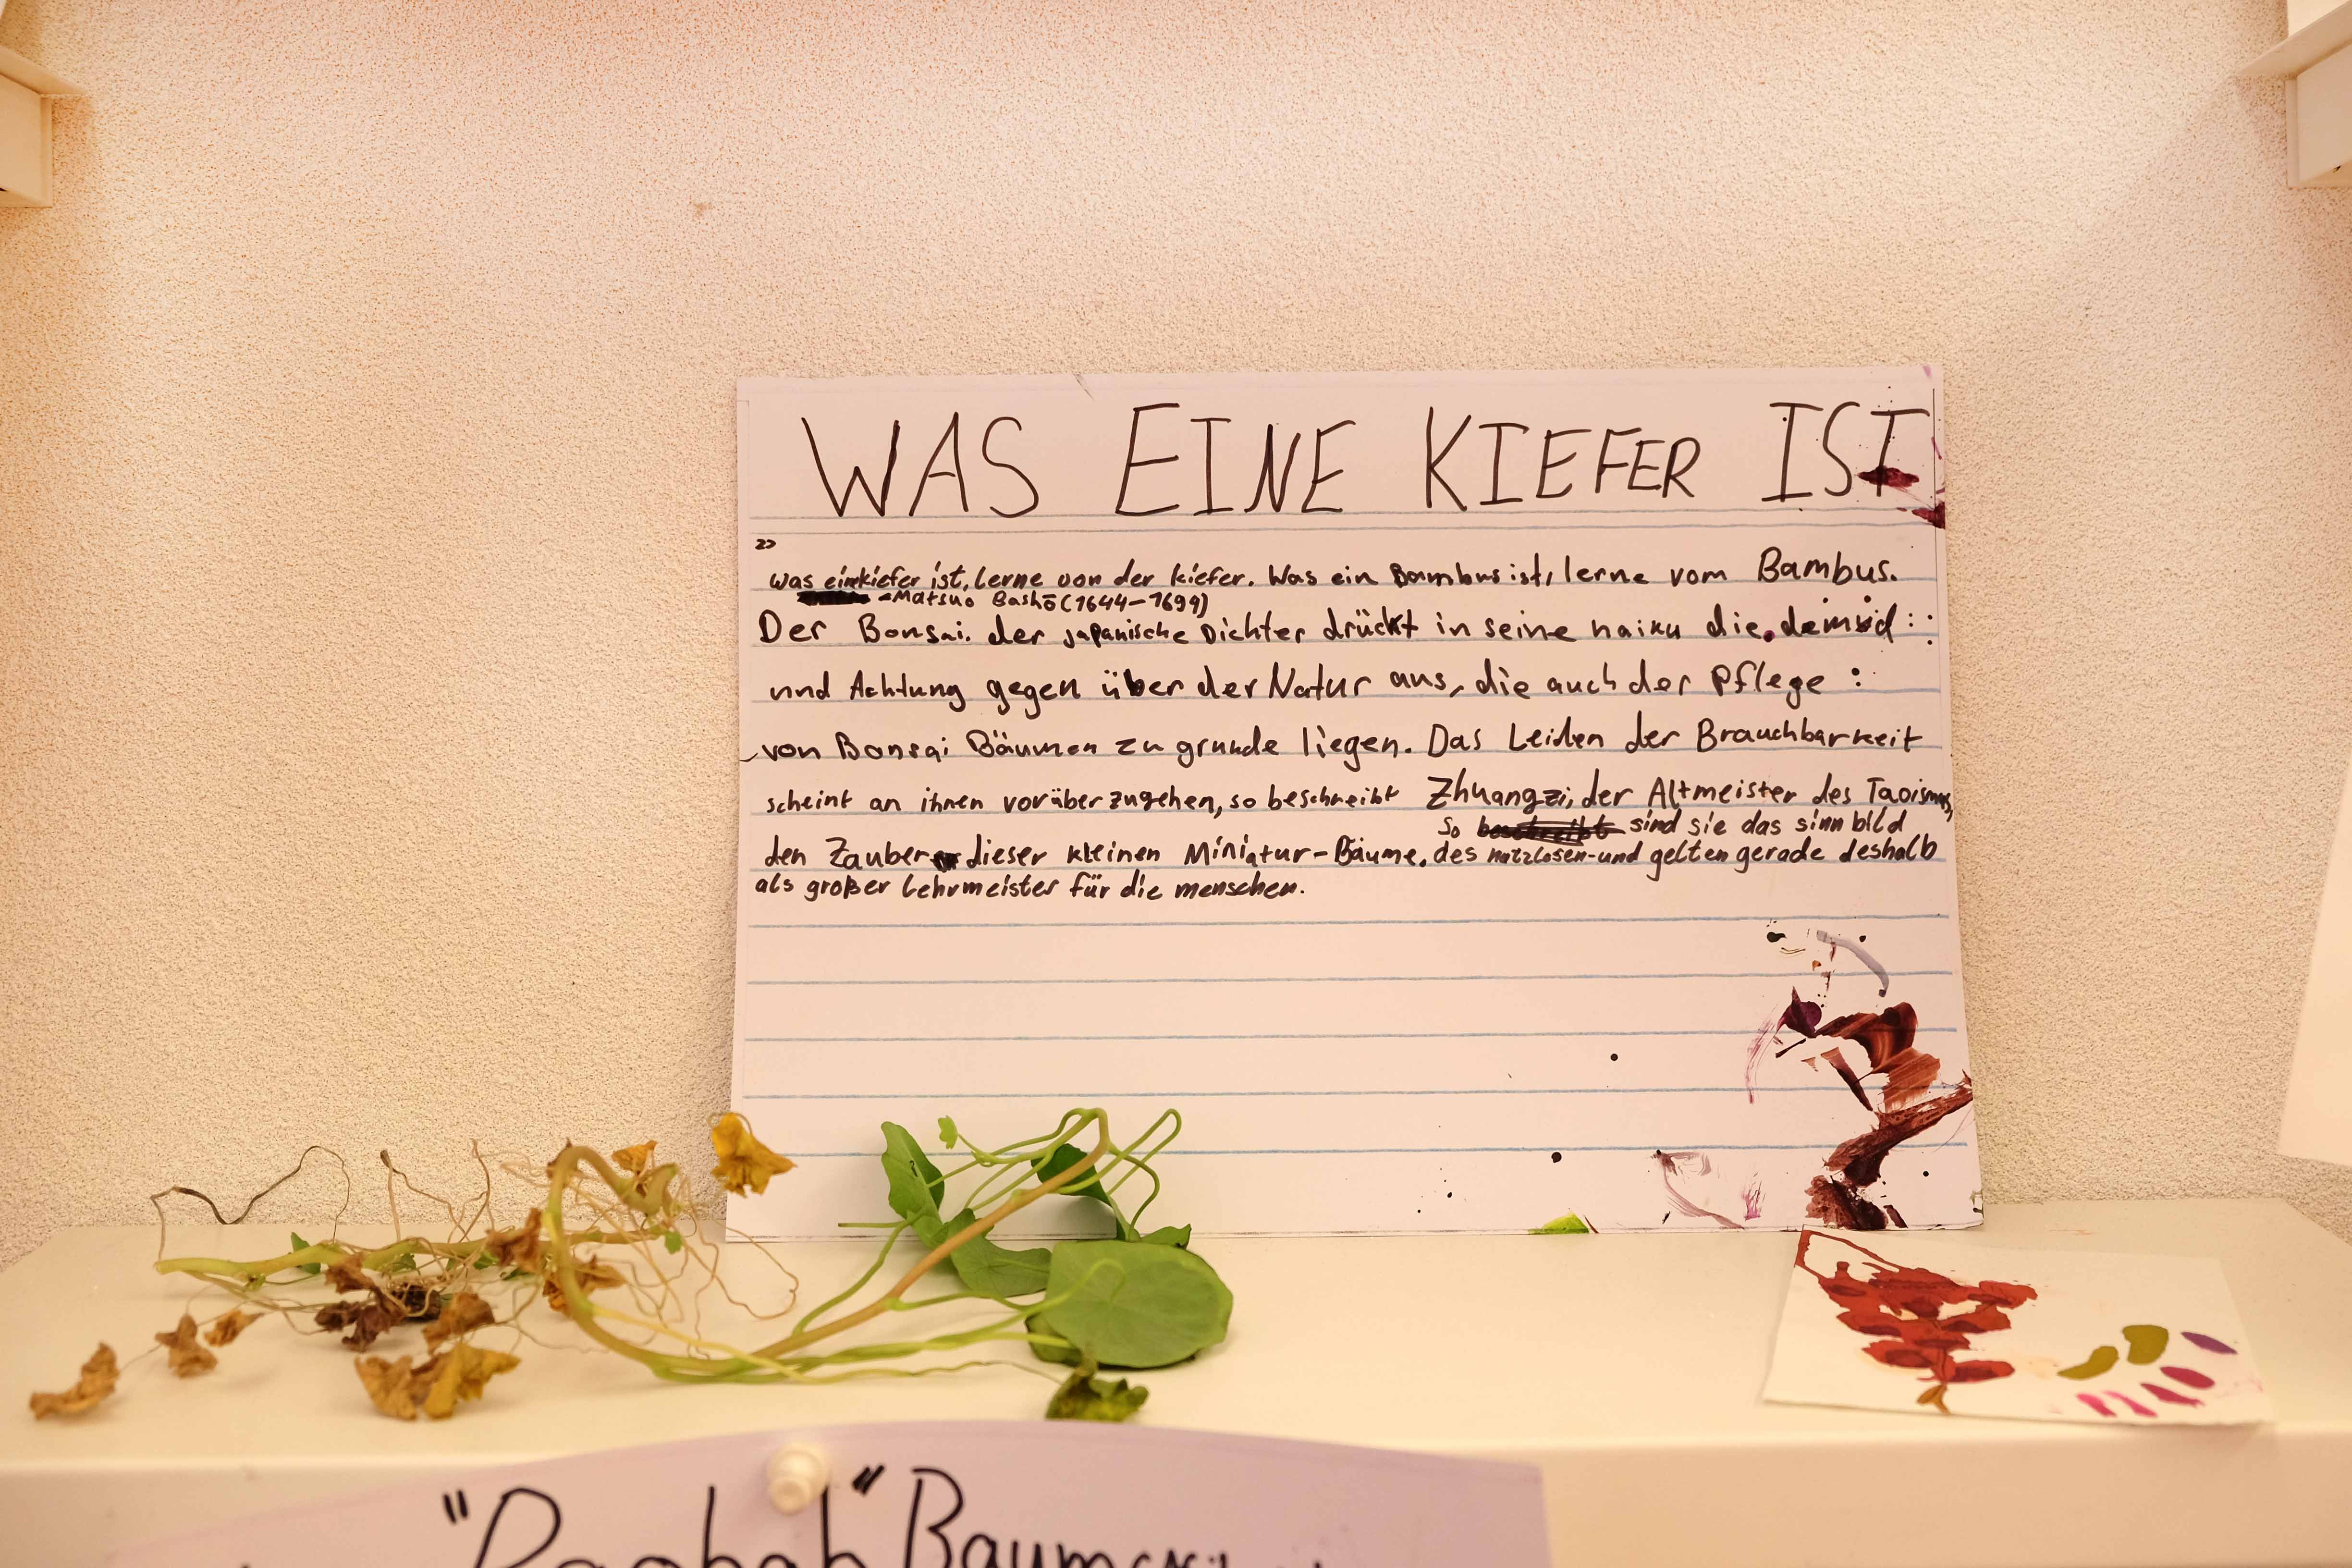 WAS EINE KIEFER IST
"
was eine kiefer ist, lerne von der kiefer. Was ein Bambus ist, lerne vom Bambus.
-Matsuo Bashō (1644-1694)
Der Bonsai. der japanische Dichter drückt in seine haiku die demud
und Achtung gegen über der Natur aus, die auch der Pflege
von Bonsai Bäumen zu grunde liegen. Das Leiden der Brauchbarkeit
scheint an ihnen vorüberzugehen, so beschreibt Zhuangzi, der Altmeister des Taoismus,
so sind sie das sinnbild
den Zauber dieser kleinen Miniatur-Bäume, des nutzlosen-und gelten gerade deshalb
als großer Lehrmeister für die menschen.